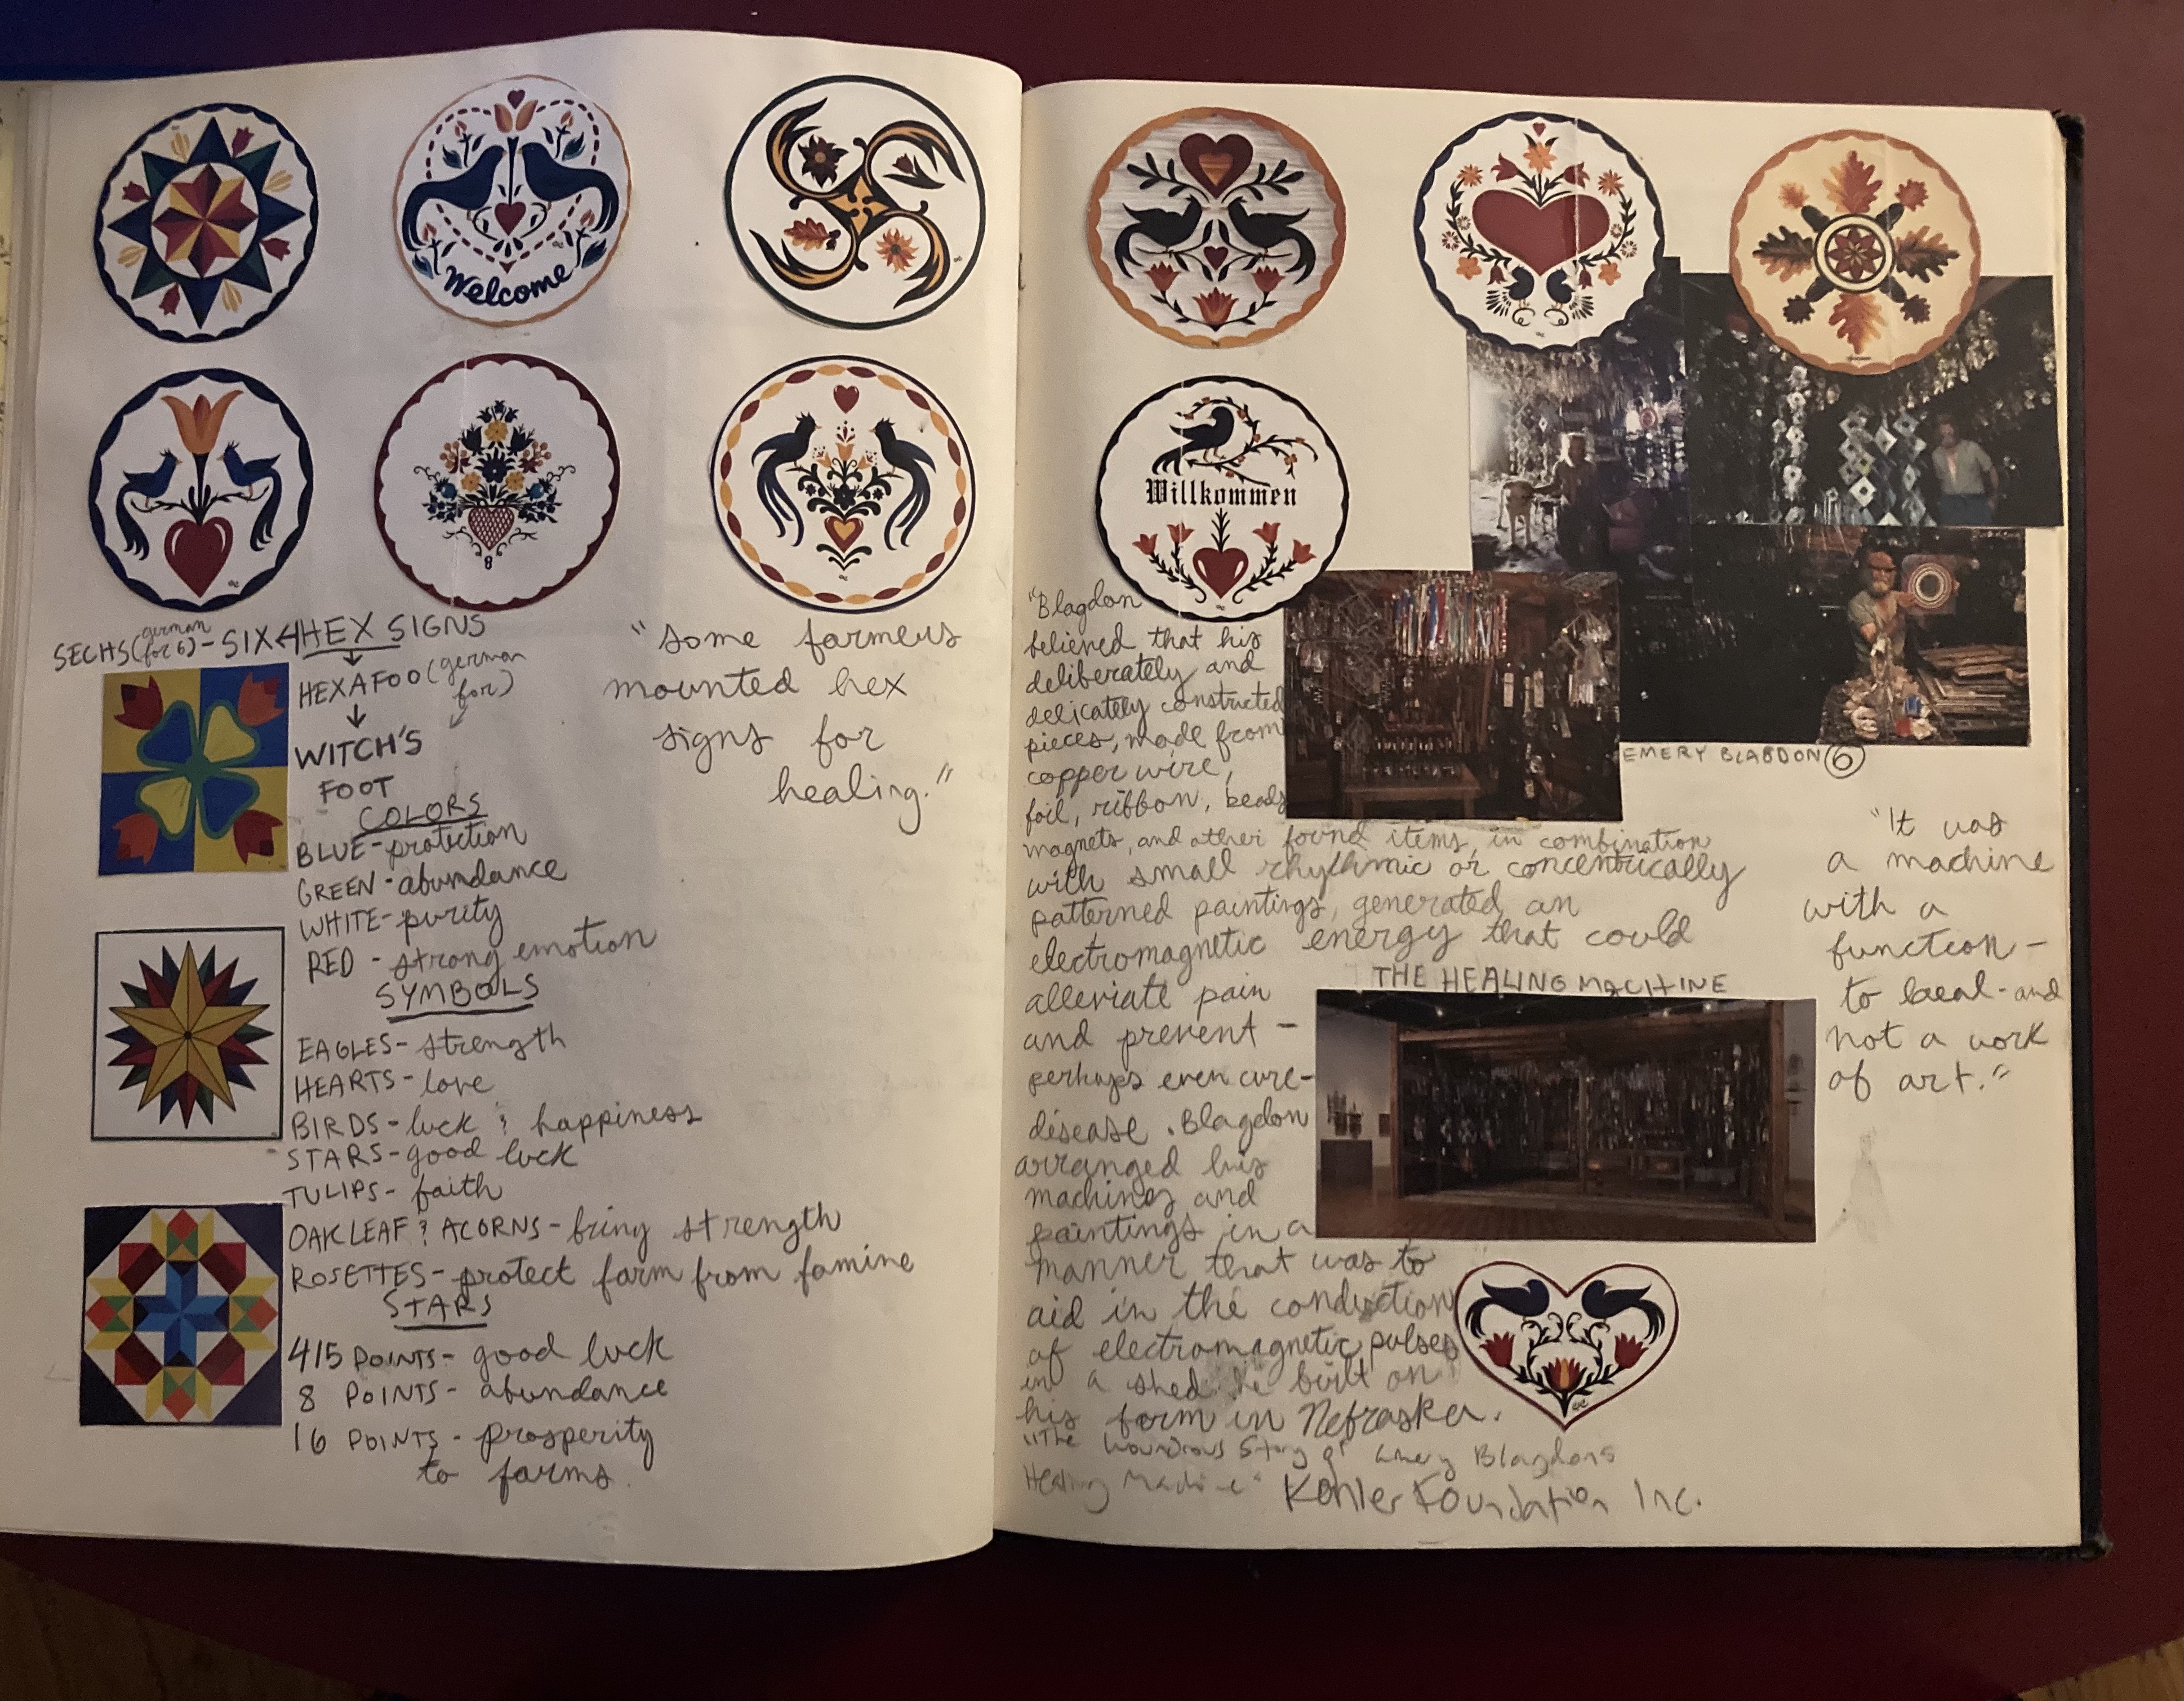 Welcome
SECHS (german for 6) - SIX ← HEX SIGNS
HEXAFOO (german for)
WITCH'S
FOOT
COLORS
BLUE - protection
GREEN - abundance
WHITE - purity
RED - strong emotion
SYMBOLS
EAGLES - strength
HEARTS - love
BIRDS - luck & happiness
STARS - good luck
TULIPS - faith
OAK LEAF & ACORNS - bring strength
ROSETTES - protect farm from famine
STARS
4/5 POINTS - good luck
8 POINTS - abundance
16 POINTS - prosperity
to farms.
"some farmers
mounted hex
signs for
healing."
Willkommen
"Blagdon
believed that his
deliberately and
delicately constructed
pieces, made from
copper wire,
foil, ribbon, beads
magnets, and other found items, in combination
with small rhythmic or concentrically
patterned paintings, generated an
electromagnetic energy that could
alleviate pain
and prevent -
perhaps even cure -
disease. Blagdon
arranged his
machines and
paintings in a
manner that was to
aid in the conduction
of electromagnetic pulses
in a shed he built on
his farm in Nebraska.
"The Wondrous Story of Emery Blagdons
Healing Machine" Kohler Foundation Inc.
EMERY BLAGDON 6
THE HEALING MACHINE
"It was
a machine
with a
function -
to heal - and
not a work
of art."